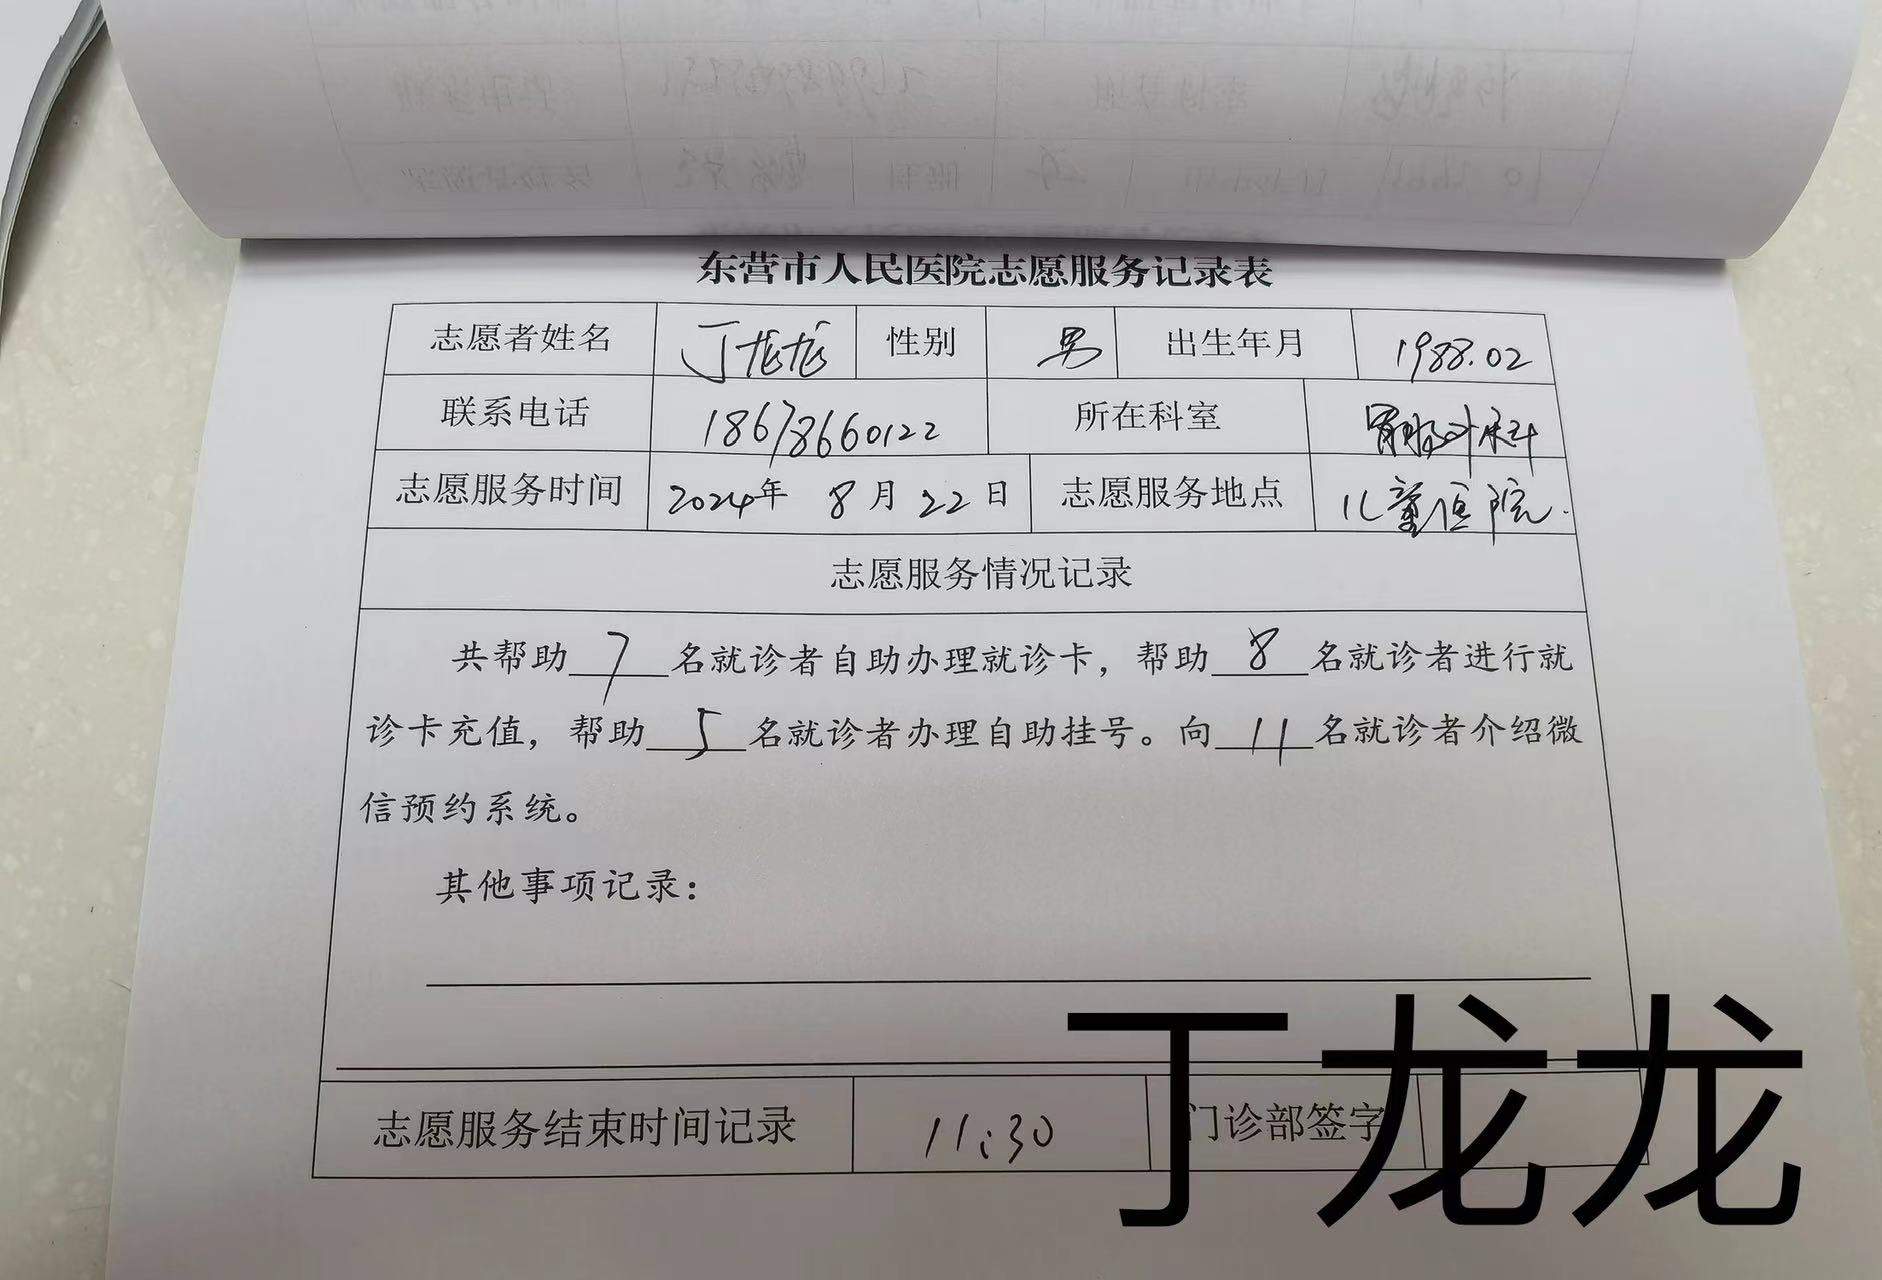 东营市人民医院志愿服务记录表
志愿者姓名 丁龙龙 性别 男 出生年月 1988.02
联系电话 18678660122 所在科室 胃肠外科
志愿服务时间 2024年 8月22日 志愿服务地点 儿童医院.
志愿服务情况记录
共帮助7名就诊者自助办理就诊卡，帮助8名就诊者进行就
诊卡充值，帮助5名就诊者办理自助挂号。向11名就诊者介绍微
信预约系统。
其他事项记录：
志愿服务结束时间记录 11:30 门诊部签字
丁龙龙